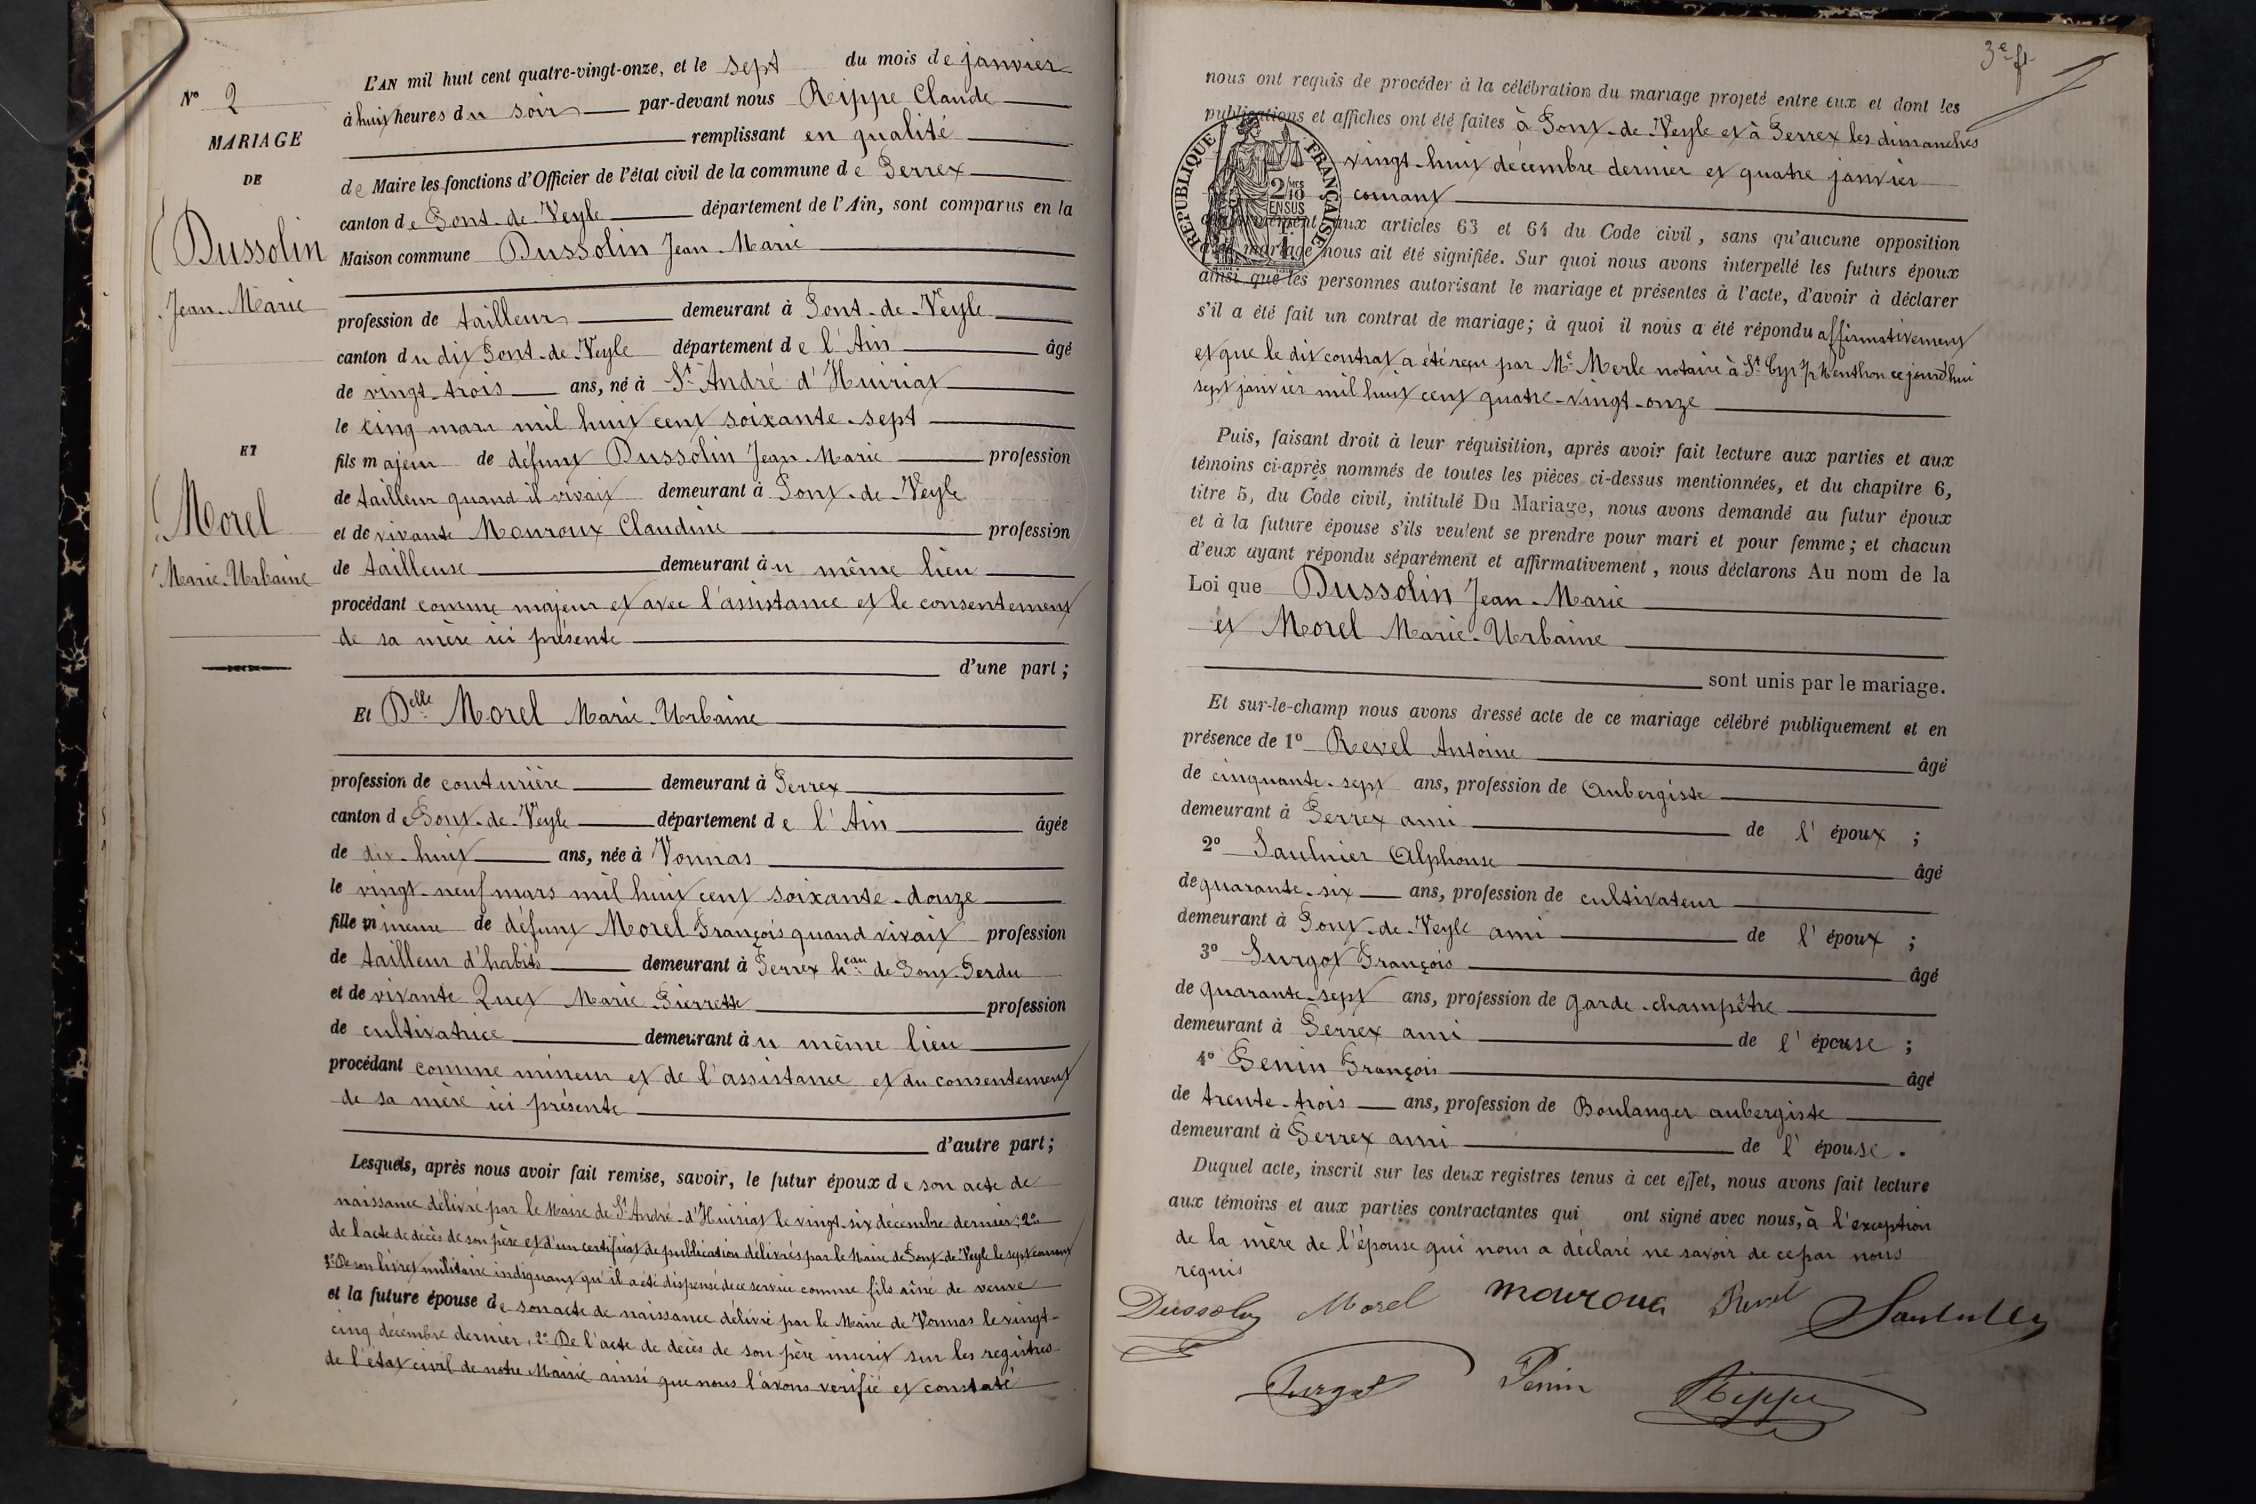 N° 2
MARIAGE
DE
Dussolin
Jean-Marie
ET
Morel
Marie-Urbaine
L'AN mil huit cent quatre-vingt-onze, et le sept du mois de janvier
à huit heures du soir par-devant nous Rippe Claude
remplissant en qualité
de Maire les fonctions d'Officier de l'état civil de la commune de Perrex
canton de Pont-de-Veyle département de l'Ain, sont comparus en la
Maison commune Dussolin Jean-Marie
profession de tailleur demeurant à Pont-de-Veyle
canton du dit Pont-de-Veyle département de l'Ain âgé
de vingt-trois ans, né à St André d'Huiriat
le cinq mars mil huit cent soixante-sept
fils majeur de défunt Dussolin Jean-Marie profession
de tailleur quand il vivait demeurant à Pont-de-Veyle
et de vivante Mouroux Claudine profession
de tailleuse demeurant àu même lieu
procédant comme majeur et avec l'assistance et le consentement
de sa mère ici présente
d'une part;
Et Delle Morel Marie-Urbaine
profession de couturière demeurant à Perrex
canton de Pont-de-Veyle département de l'Ain âgée
de dix-huit ans, née à Vonnas
le vingt-neuf mars mil huit cent soixante-douze
fille mineure de défunt Morel François quand vivait profession
de tailleur d'habits demeurant à Perrex heau de Pont-Perdu
et de vivante Quet Marie-Pierrette profession
de cultivatrice demeurant àu même lieu
procédant comme mineur et de l'assistance et du consentement
de sa mère ici présente
d'autre part;
Lesquels, après nous avoir fait remise, savoir, le futur époux de son acte de
naissance délivré par le Maire de St André-d'Huiriat le vingt-six décembre dernier; 2°
de l'acte de décès de son père et d'un certificat de publication délivrés par le Maire de Pont-de-Veyle le sept courant
3° De son livret militaire indiquant qu'il a été dispensé de ce service comme fils aîné de veuve
et la future épouse de son acte de naissance délivré par le Maire de Vonnas le vingt-
cinq décembre dernier, 2° De l'acte de décès de son père inscrit sur les registres
de l'état civil de notre Mairie ainsi que nous l'avons verifié et constaté
3e f
nous ont requis de procéder à la célébration du mariage projeté entre eux et dont les
publications et affiches ont été faites à Pont-de-Veyle et à Perrex les dimanches
vingt-huit décembre dernier et quatre janvier
courant
RÉPUBLIQUE FRANÇAISE
2/10
EN SUS
conformément aux articles 63 et 64 du Code civil, sans qu'aucune opposition
mariage nous ait été signifiée. Sur quoi nous avons interpellé les futurs époux
ainsi que les personnes autorisant le mariage et présentes à l'acte, d'avoir à déclarer
s'il a été fait un contrat de mariage; à quoi il nous a été répondu affirmativement
et que le dit contrat a été reçu par Me Merle notaire à St Cyr s/ Menthon ce jourd'hui
sept janvier mil huit cent quatre-vingt-onze
Puis, faisant droit à leur réquisition, après avoir fait lecture aux parties et aux
témoins ci-après nommés de toutes les pièces ci-dessus mentionnées, et du chapitre 6,
titre 5, du Code civil, intitulé Du Mariage, nous avons demandé au futur époux
et à la future épouse s'ils veulent se prendre pour mari et pour femme; et chacun
d'eux ayant répondu séparément et affirmativement, nous déclarons Au nom de la
Loi que Dussolin Jean-Marie
et Morel Marie-Urbaine
sont unis par le mariage.
Et sur-le-champ nous avons dressé acte de ce mariage célébré publiquement et en
présence de 1° Revel Antoine âgé
de cinquante-sept ans, profession de Aubergiste
demeurant à Perrex ami de l'époux;
2° Saulnier Alphonse âgé
de quarante-six ans, profession de cultivateur
demeurant à Pont-de-Veyle ami de l'époux;
3° Turgot François âgé
de quarante-sept ans, profession de garde-champêtre
demeurant à Perrex ami de l'épouse;
4° Penin François âgé
de trente-trois ans, profession de Boulanger aubergiste
demeurant à Perrex ami de l'épouse.
Duquel acte, inscrit sur les deux registres tenus à cet effet, nous avons fait lecture
aux témoins et aux parties contractantes qui ont signé avec nous, à l'exception
de la mère de l'épouse qui nous a déclaré ne savoir de ce par nous
requis
Dussolin Morel mouroux Revel
Turgot Penin Rippe